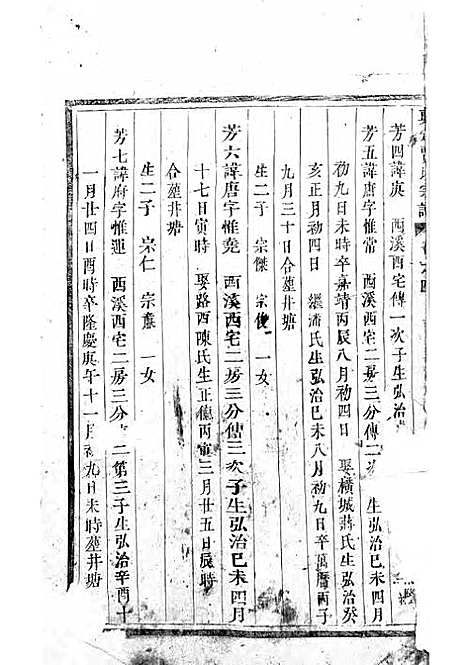 宗譜
芳四諱庚 西溪西宅傳一次子生弘治
芳五諱庶字惟常 西溪西宅二房三分傳二 生弘治己未四月
初九日未時卒嘉靖丙辰八月初四日 娶橫城蔣氏生弘治癸
亥正月初四日 繼潘氏生弘治己未八月初九日卒萬曆丙子
九月三十日合塟井塘
生二子 宗傑 宗俊 一女
芳六諱唐字惟堯 西溪西宅二房三分傳二次子生弘治己未四月
十七日寅時 娶路西陳氏生正德丙寅三月廿五日辰時
合塟井塘
生二子 宗仁 宗 一女
芳七諱府字惟運 西溪西宅二房三分 二第三子生弘治辛酉十
一月廿四日酉時卒隆慶庚午十一月初九日未時塟井塘